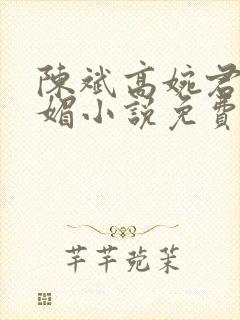 陳斌高婉君
媚小說免費
芊芊菀茉